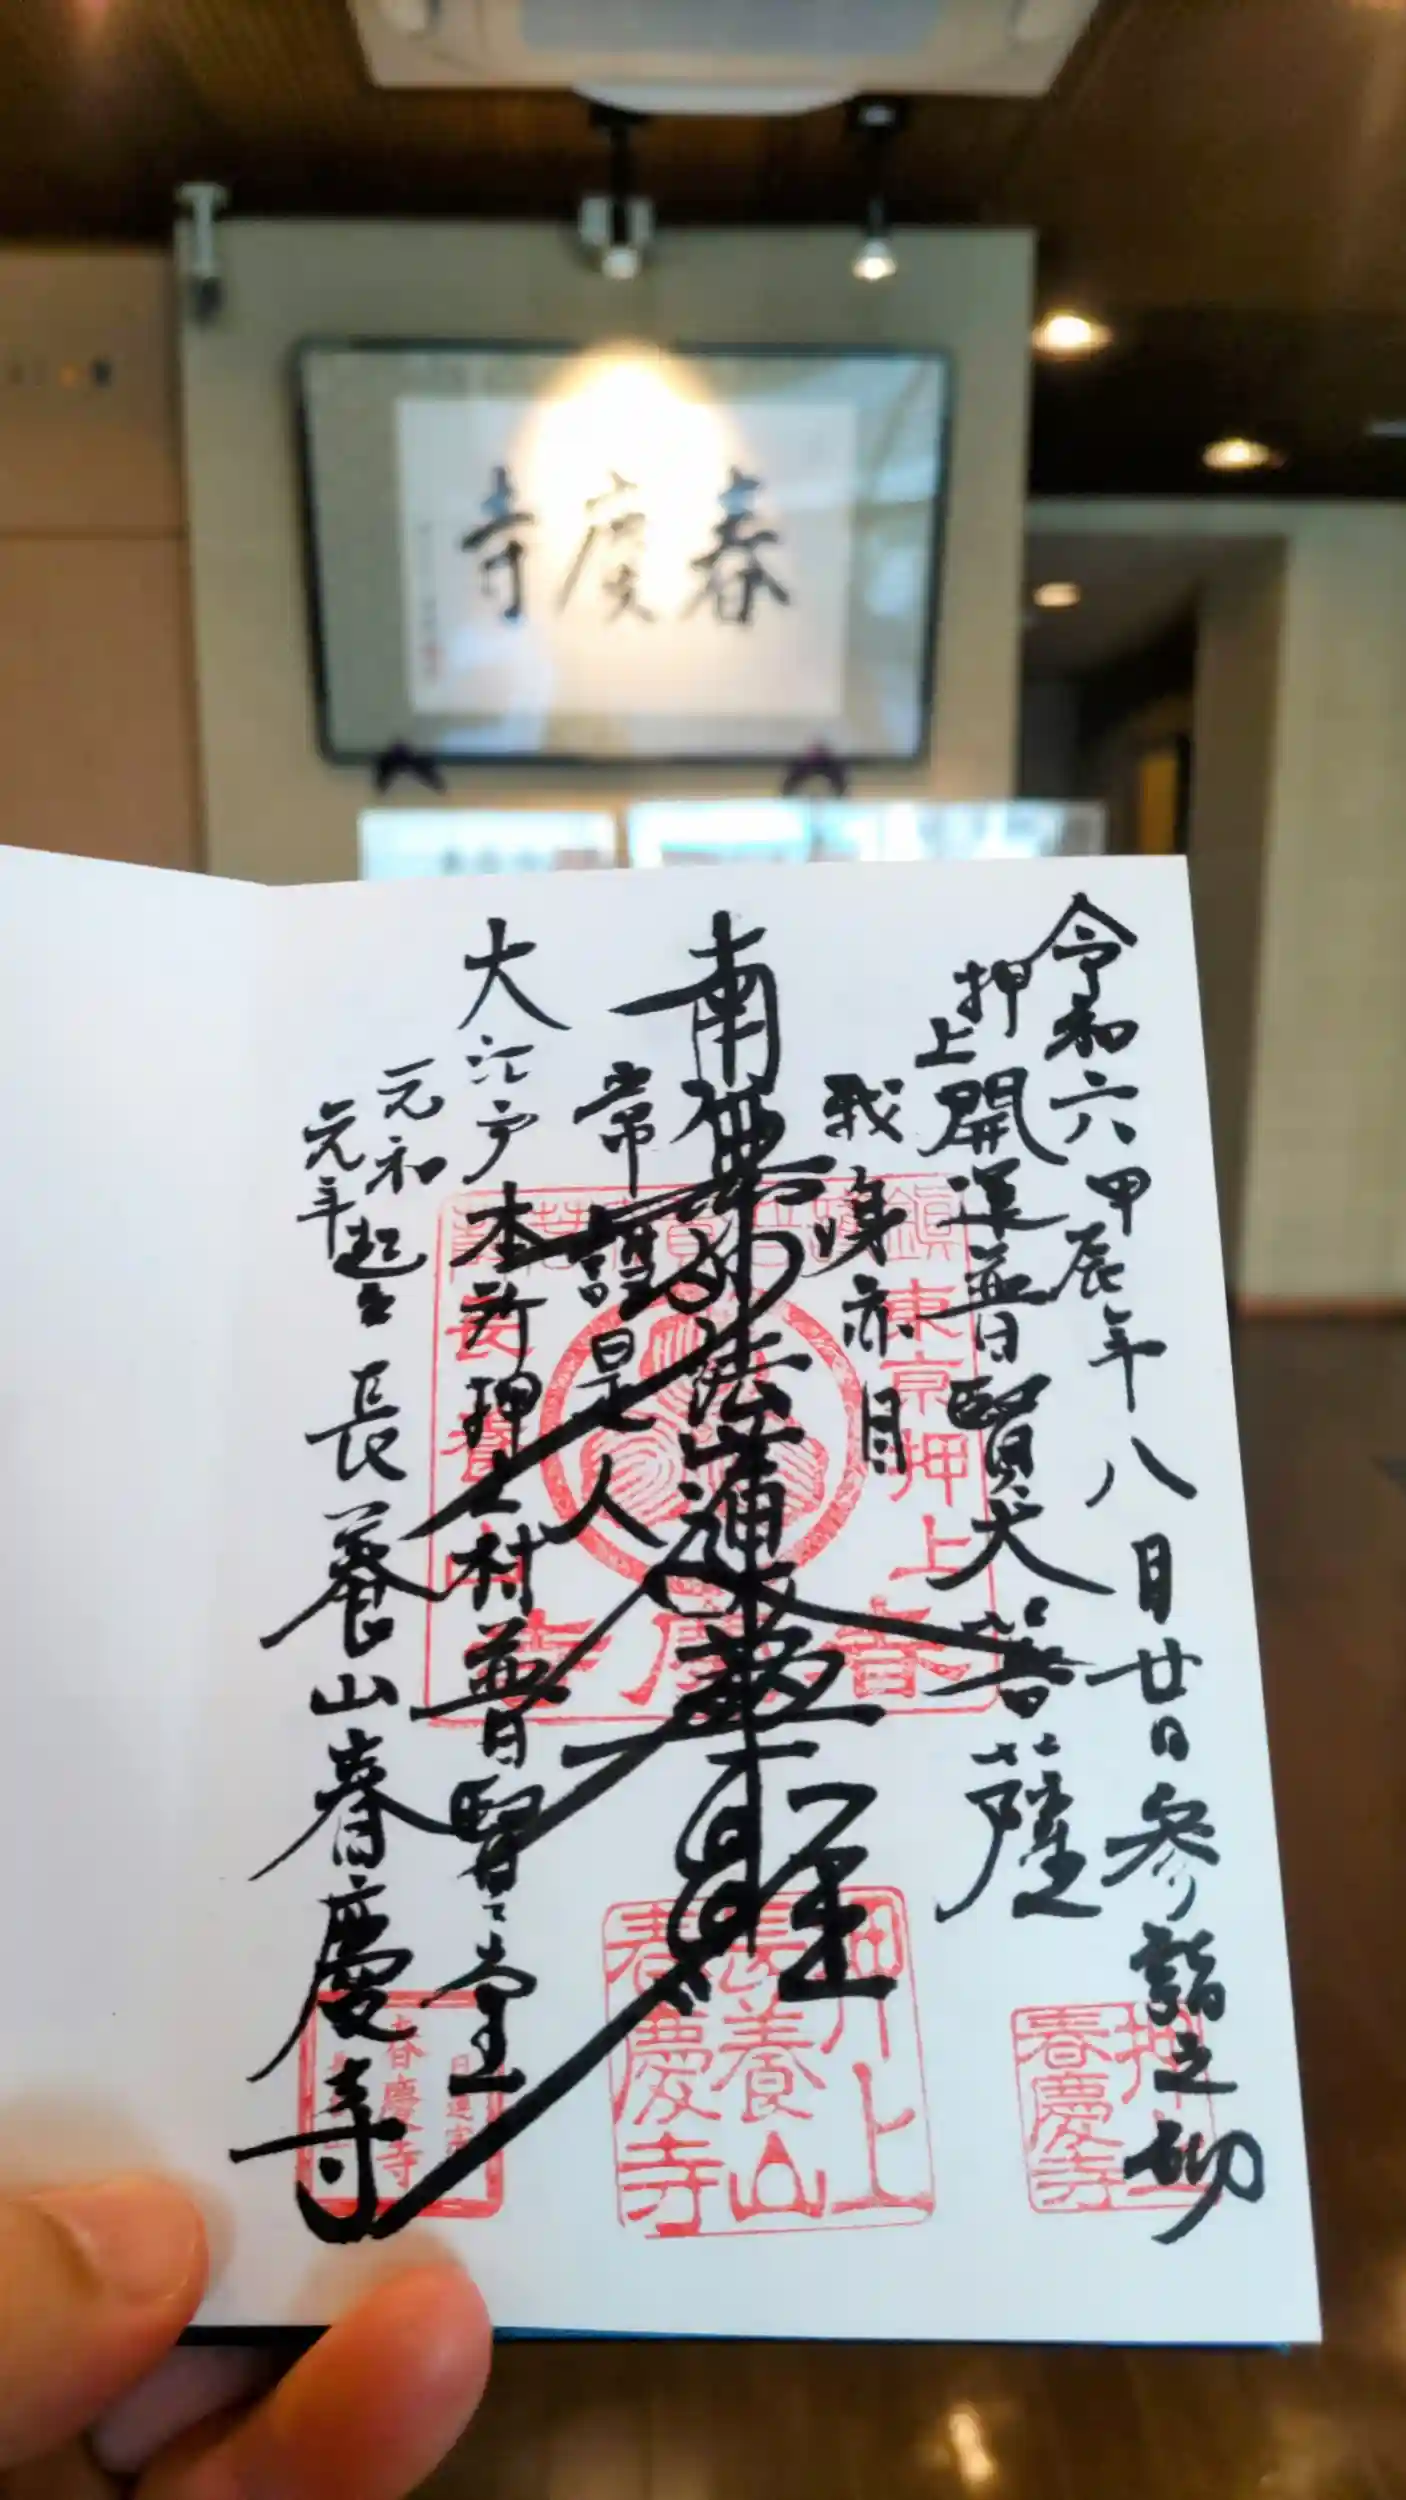 寺慶春
令和六甲辰年八月廿日参詣之砌
押上開運普賢大菩薩
我身赤目
南無妙法蓮華経
常護是人
大江戸本所押上村普賢堂
元和元年起立長養山春慶寺
鎮
東京押上
春慶寺
押上
長養山
春慶寺
春慶寺
春慶寺